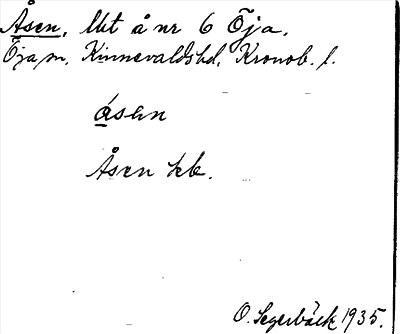 Åsen, lht å nr 6 Öja.
Öja sn, Kinnevaldshd, Kronob. l.
åsen
Åsen jrb.
O. Segerbäck 1935.